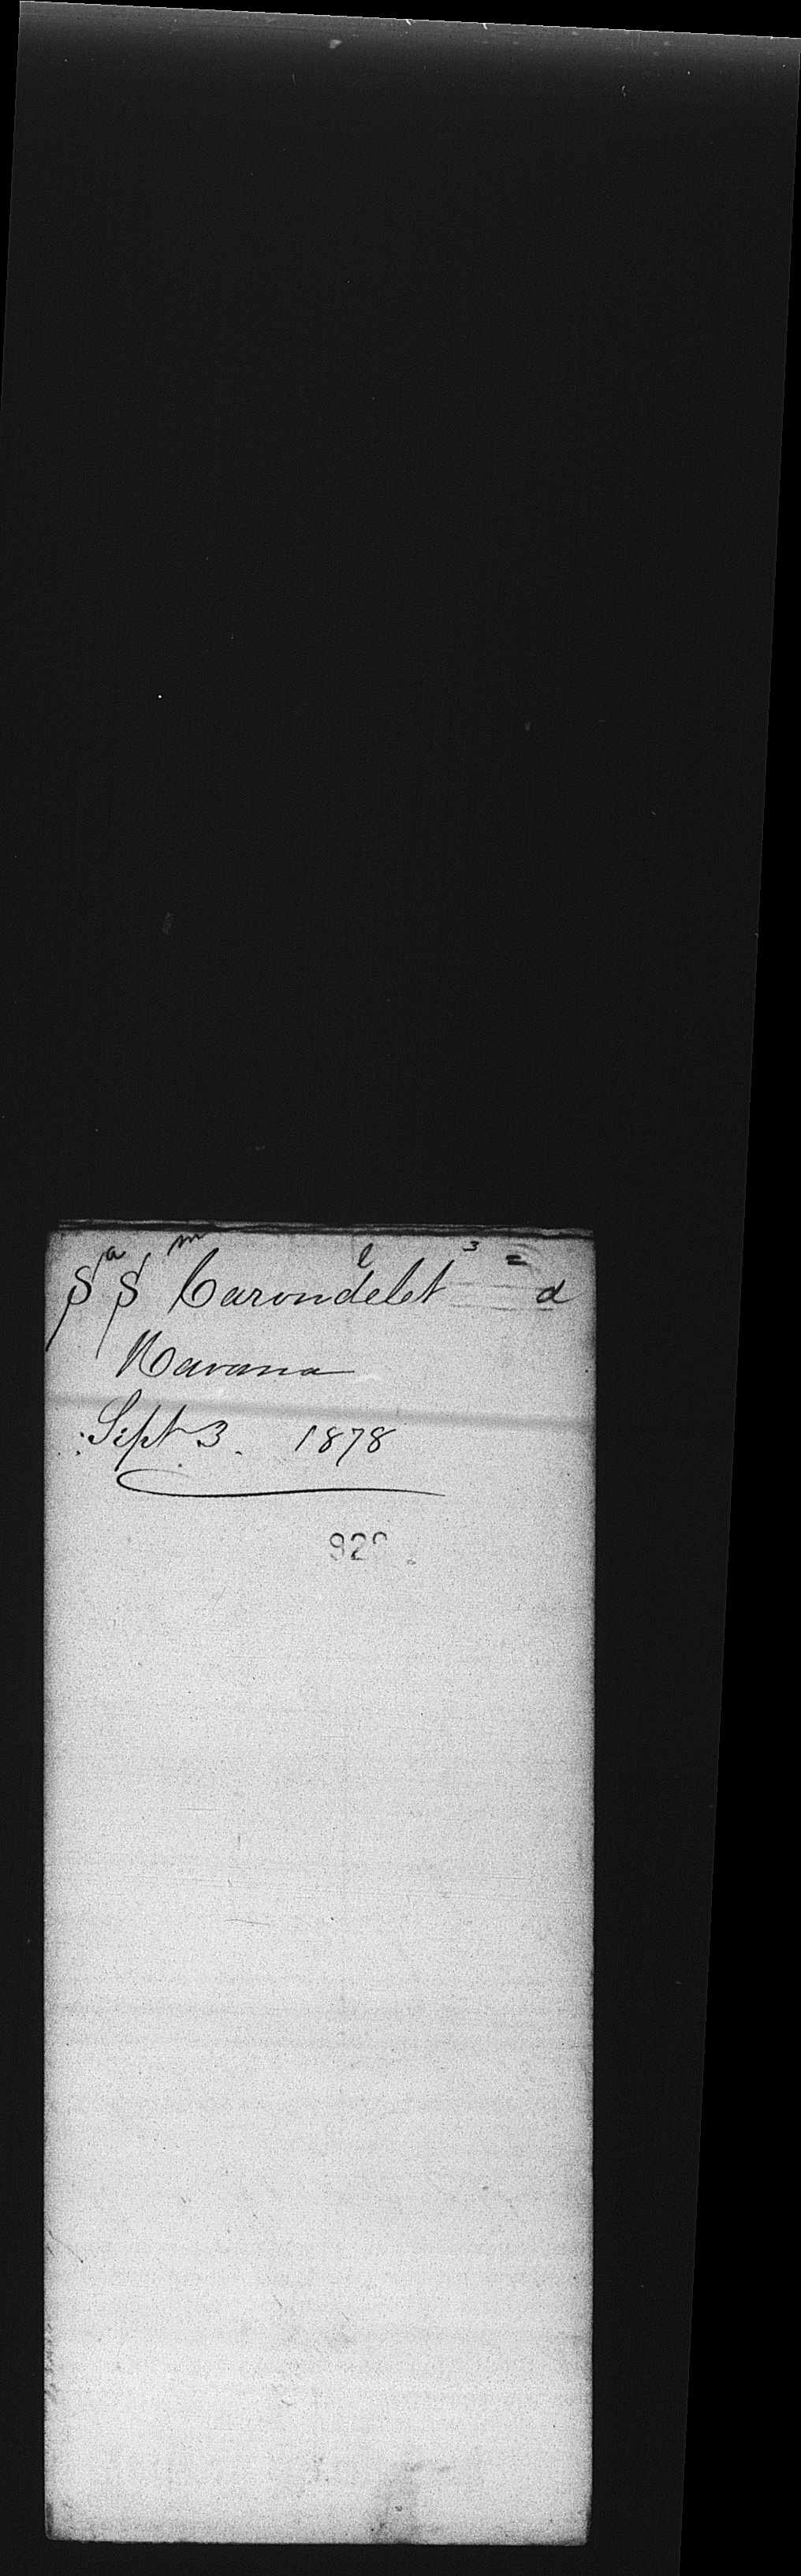 S S Carondelet
Havana
Sept 3. 1878